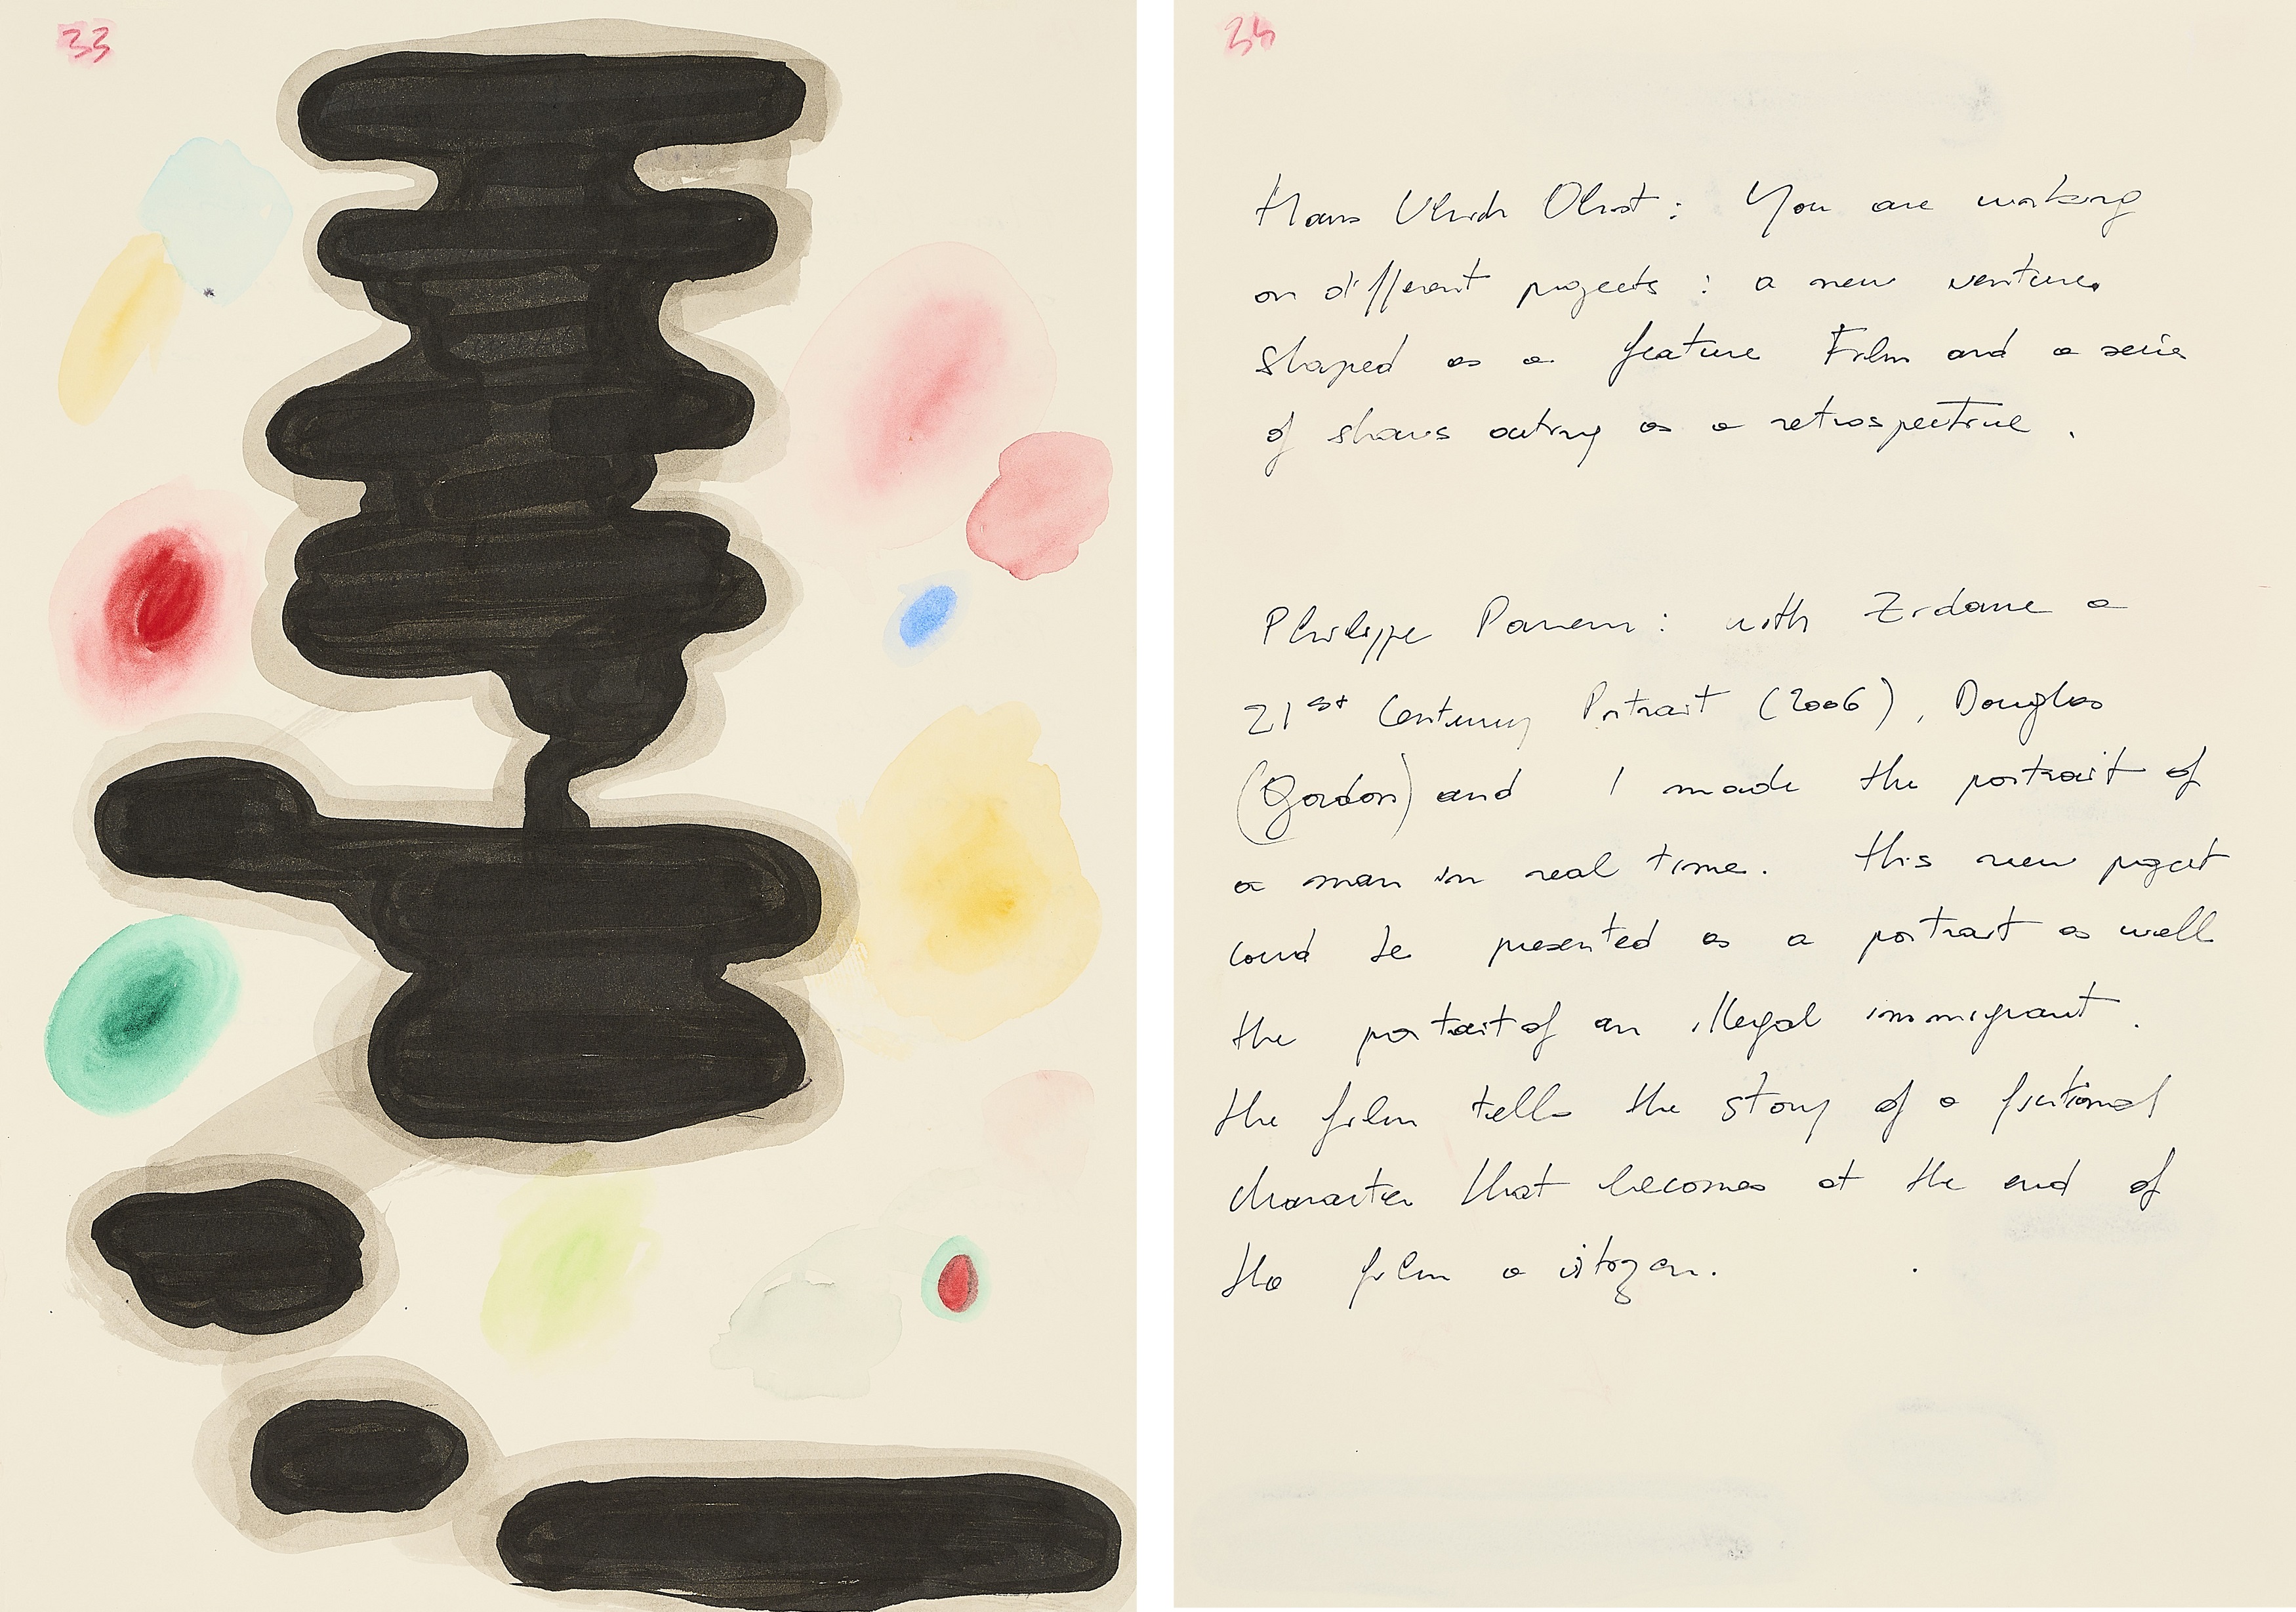 33
34
Hans Ulrich Obrist : You are working
on different projects : a new venture
shaped as a feature Film and a serie
of shows acting as a retrospective .
Philippe Parreno : with Zidane a
21st Century Portrait (2006), Douglas
(Gordon) and I made the portrait of
a man in real time. this new project
could be presented as a portrait as well
the portrait of an illegal immigrant .
the film tells the story of a fictional
character that becomes at the end of
the film a citizen.